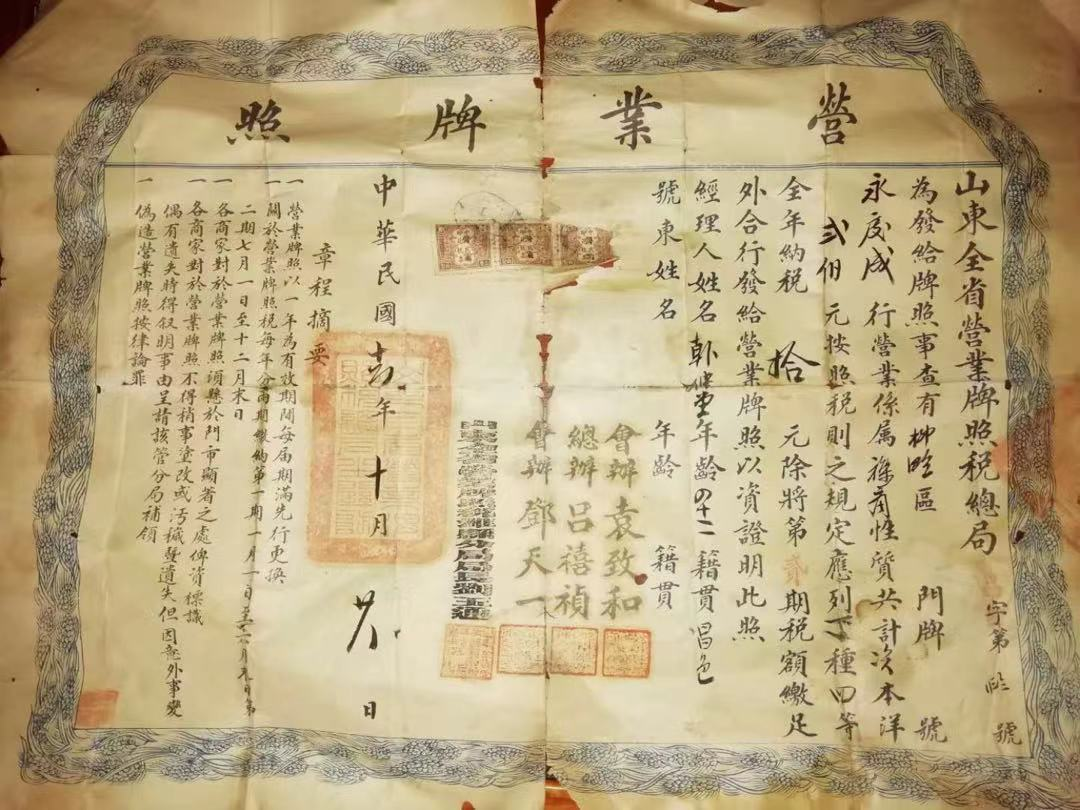 營業牌照
山東全省營業牌照稅總局
為發給牌照事查有 區 門牌 號
永慶成 行營業係屬雜貨性質共計資本洋
弍佰 元按照稅則之規定應列丁種四等
全年納稅 拾 元除將第 貳 期稅額繳足
外合行發給營業牌照以資證明此照
經理人姓名 年齡 四十二 籍貫 昌邑
號東姓名 年齡 籍貫
字第 號
會辦 袁致和
總辦 呂禧禎
會辦 鄧天一
山東全省營業牌照稅濰縣分局局長劉玉
中華民國 年 十 月 廿八 日
章程摘要
一 營業牌照以一年為有效期間每屆期滿先行更換
一 關於營業牌照稅每年分兩期繳納第一期一月一日至六月末日第
二期七月一日至十二月末日
一 各商家對於營業牌照須懸於門市顯著之處俾資標識
一 各商家對於營業牌照不得稍事塗改或汚穢暨遺失但因意外事變
偶有遺失時得叙明事由呈請該管分局補領
一 偽造營業牌照按律論罪